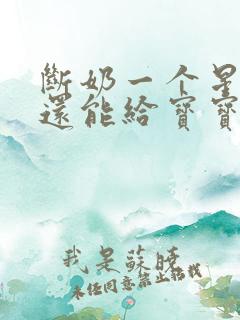 斷奶一个星
還能給寶寶
我是蘇曉
未经同意禁止搭我